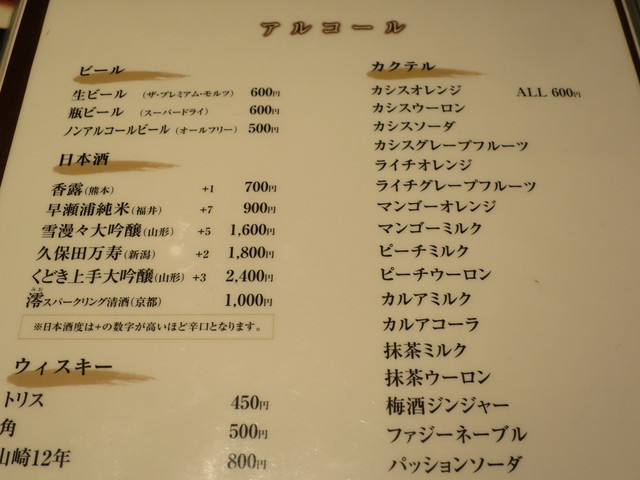 アルコール
ビール
生ビール (ザ・プレミアム・モルツ) 600円
瓶ビール (スーパードライ) 600円
ノンアルコールビール (オールフリー) 500円
日本酒
香露(熊本) +1 700円
早瀬浦純米(福井) +7 900円
雪漫々大吟醸(山形) +5 1,600円
久保田万寿(新潟) +2 1,800円
くどき上手大吟醸(山形) +3 2,400円
みお
澪スパークリング清酒(京都) 1,000円
※日本酒度は+の数字が高いほど辛口となります。
ウィスキー
トリス 450円
角 500円
山崎12年 800円
カクテル
カシスオレンジ ALL 600円
カシスウーロン
カシスソーダ
カシスグレープフルーツ
ライチオレンジ
ライチグレープフルーツ
マンゴーオレンジ
マンゴーミルク
ピーチミルク
ピーチウーロン
カルアミルク
カルアコーラ
抹茶ミルク
抹茶ウーロン
梅酒ジンジャー
ファジーネーブル
パッションソーダ